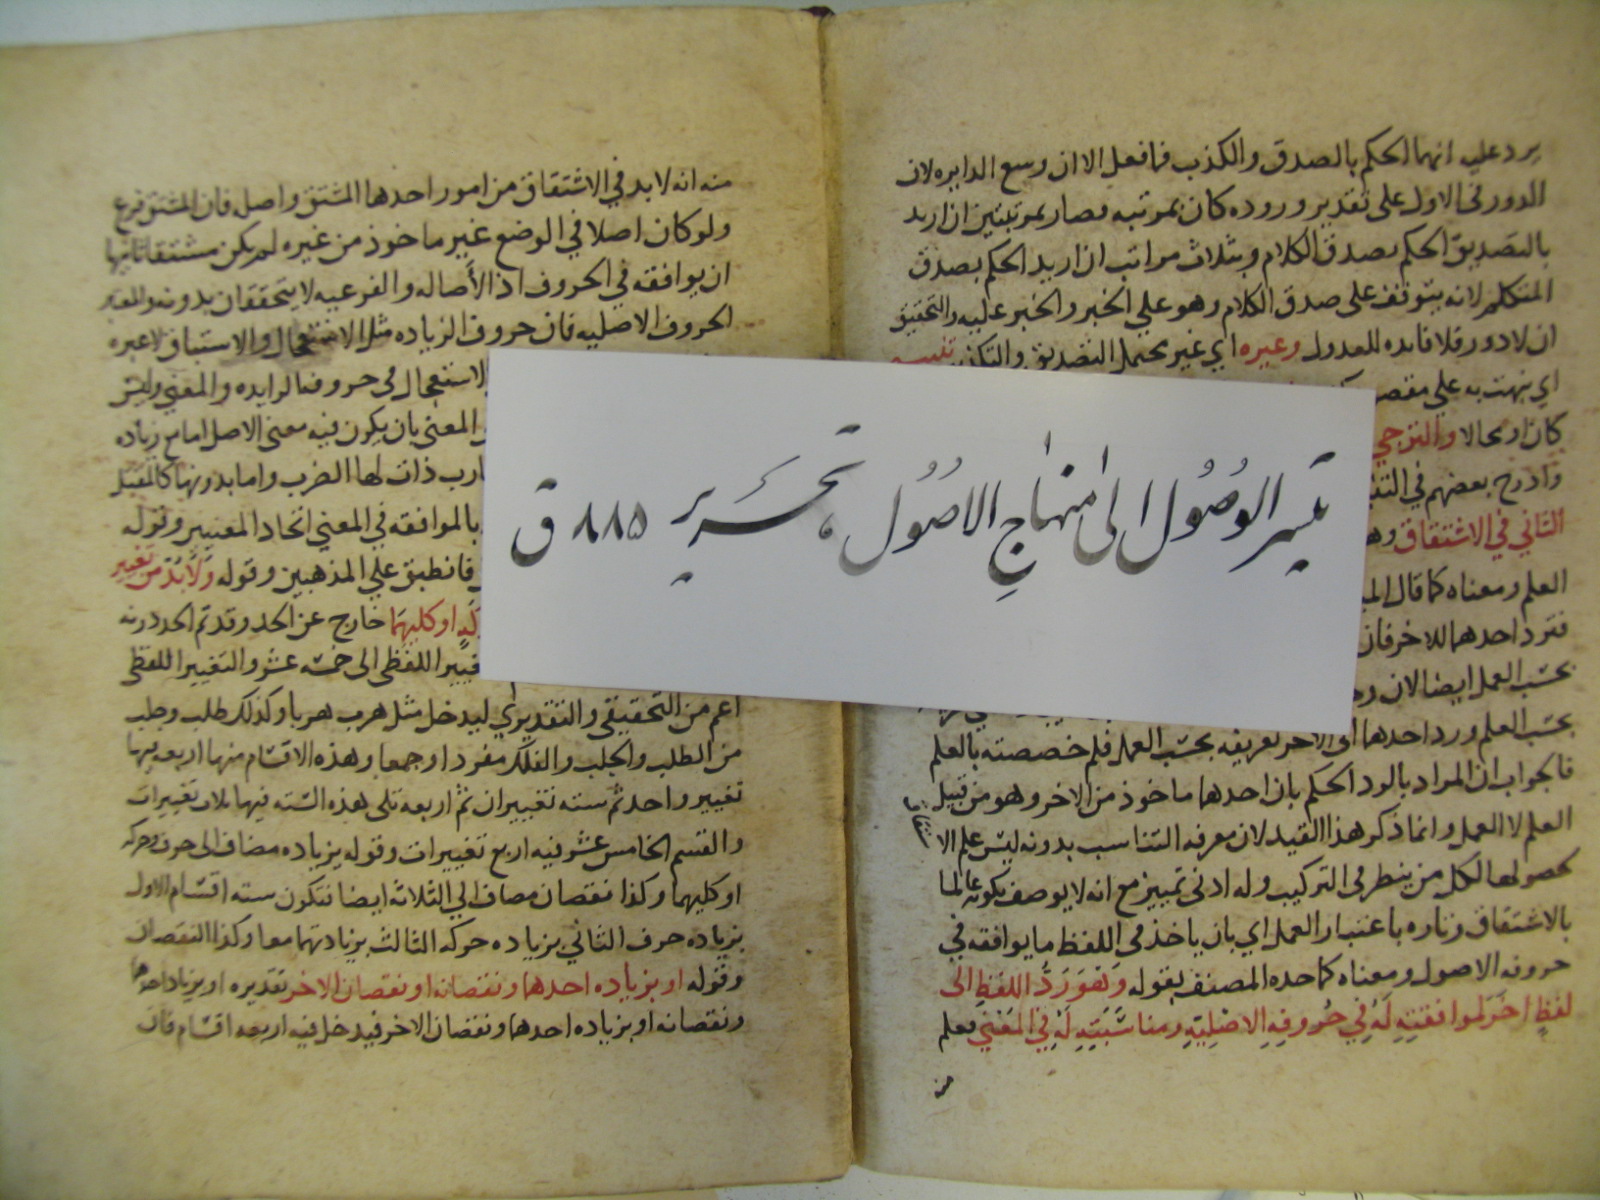 يرد عليه انهما الحكم بالصدق والكذب فما فعل الا ان وسع الدايره لان
الدور في الاول على تقدير وروده كان بمرتبه فصار بمرتبتين ان اريد
بالتصديق الحكم بصدق الكلام وبثلاث مراتب ان اريد الحكم بصدق
المتكلم لانه يتوقف على صدق الكلام وهو على الخبر والخبر عليه والتحقيق
ان لا دور فلا فايده للعدول وغيره اي غير محتمل التصديق والتكذيب تنبيه
اي نبهت به علي مقصو
كان او محالا والترجي
وادرج بعضهم في التنبيه
الثاني في الاشتقاق وهو
العلم ومعناه كما قال الميد
فترد احدهما للاخر فان
بحسب العمل ايضا لان
بحسب العلم ورد احدهما الى الاخر تعريفه بحسب العمل فلم خصصته بالعلم
فالجواب ان المراد بالرد الحكم بان احدهما ماخوذ من الاخر وهو من قبيل
العلم لا العمل وانما ذكر هذا القيد لان معرفه التناسب بدونه ليس علم الا
شتقاق
لحصولها لكل من ينظر في التركيب وله ادنى تمييز مع انه لا يوصف بكونه عالما
بالاشتقاق وتاره باعتبار العمل اي بان ياخذ في اللفظ ما يوافقه في
حروفه الاصول ومعناه كما حده المصنف بقوله وهو رد اللفظ الى
لفظ اخر لموافقته له في حروفه الاصلية ومناسبته له في المعنى فعلم
من
منه انه لا بد في الاشتقاق من امور احدها المشتق واصل فان المشتق فرع
ولو كان اصلا في الوضع غير ماخوذ من غيره لم يكن مشتقا ثانيها
ان يوافقه في الحروف اذ الأصاله والفرعيه لا يتحققان بدونه والمعتبر
الحروف الاصليه فان حروف الزياده مثل الاستعجال والاستباق لا عبره
الاستعجال في حروفه الزايده والمعني وليس
المعني بان يكون فيه معني الاصل اما مع زياده
ارب ذات لها الضرب واما بدونها كالمقتل
بالموافقه في المعني اتحاد المعنيين وقوله
فانطبق علي المذهبين وقوله ولا بد من تغيير
كة او كليهما خارج عن الحد وقد تم الحد دونه
تغيير اللفظي الى خمسه عشر والتغيير اللفظي
اعم من التحقيقي والتقديري ليدخل مثل هرب هربا وكذلك طلب وجلب
من الطلب والجلب والفلك مفردا وجمعا وهذه الاقسام منها اربعه فيها
تغيير واحد ثم سته تغييران ثم اربعه تلى هذه السته فيها ثلاث تغييرات
والقسم الخامس عشر فيه اربع تغييرات وقوله بزياده مضاف الى حرف وحركه
او كليهما وكذا نقصان مضاف الى الثلاثه ايضا فتكون سته اقسام الاول
بزياده حرف الثاني بزياده حركه الثالث بزيادتهما معا وكذا النقصان
وقوله او بزياده احدهما ونقصانه او نقصان الاخر تقديره او بزياده احدهما
ونقصانه او بزياده احدهما ونقصان الاخر فيدخل فيه اربعه اقسام فان
تيسير الوصول الى منهاج الاصول، تحرير ۸۸۵ ق